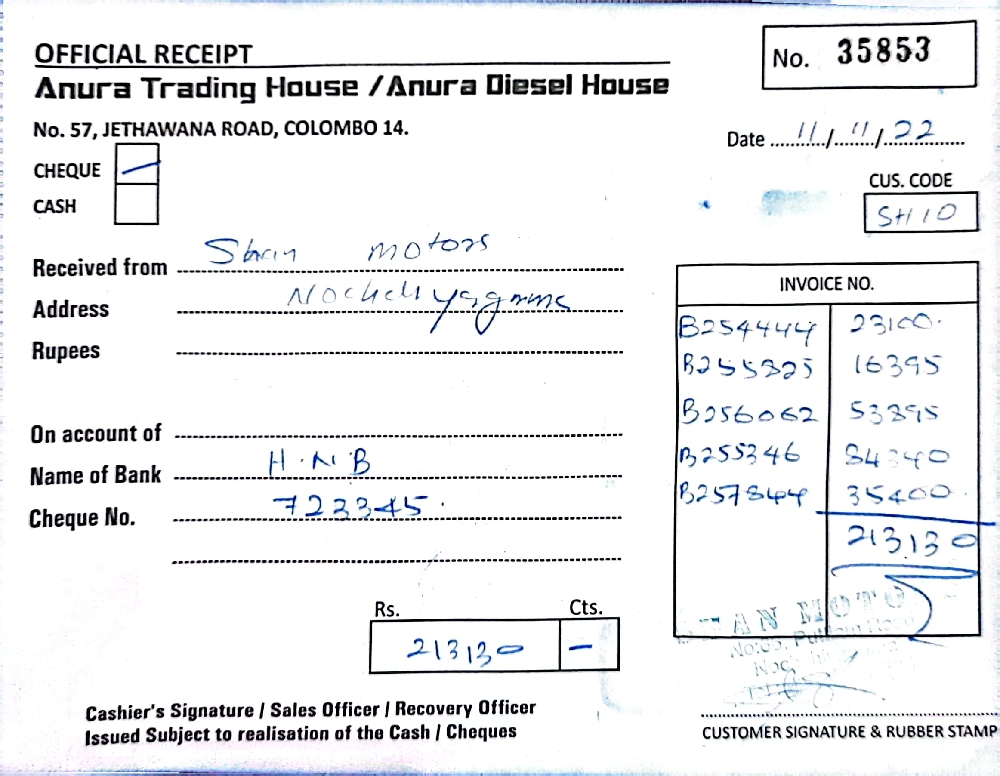 OFFICIAL RECEIPT
No. 35853
Anura Trading House / Anura Diesel House
No. 57, JETHAWANA ROAD, COLOMBO 14.
Date 11/11/22
CHEQUE
CASH
CUS. CODE
SH10
Received from Shan motors
Address Nochchiyagama
Rupees
On account of
Name of Bank H.N.B
Cheque No. 723345.
INVOICE NO.
B254444 23100.
B255325 16395
B256062 53895
B255346 84340
B257844 35400.
213130
Rs. Cts.
213130 –
Cashier's Signature / Sales Officer / Recovery Officer
Issued Subject to realisation of the Cash / Cheques
CUSTOMER SIGNATURE & RUBBER STAMP